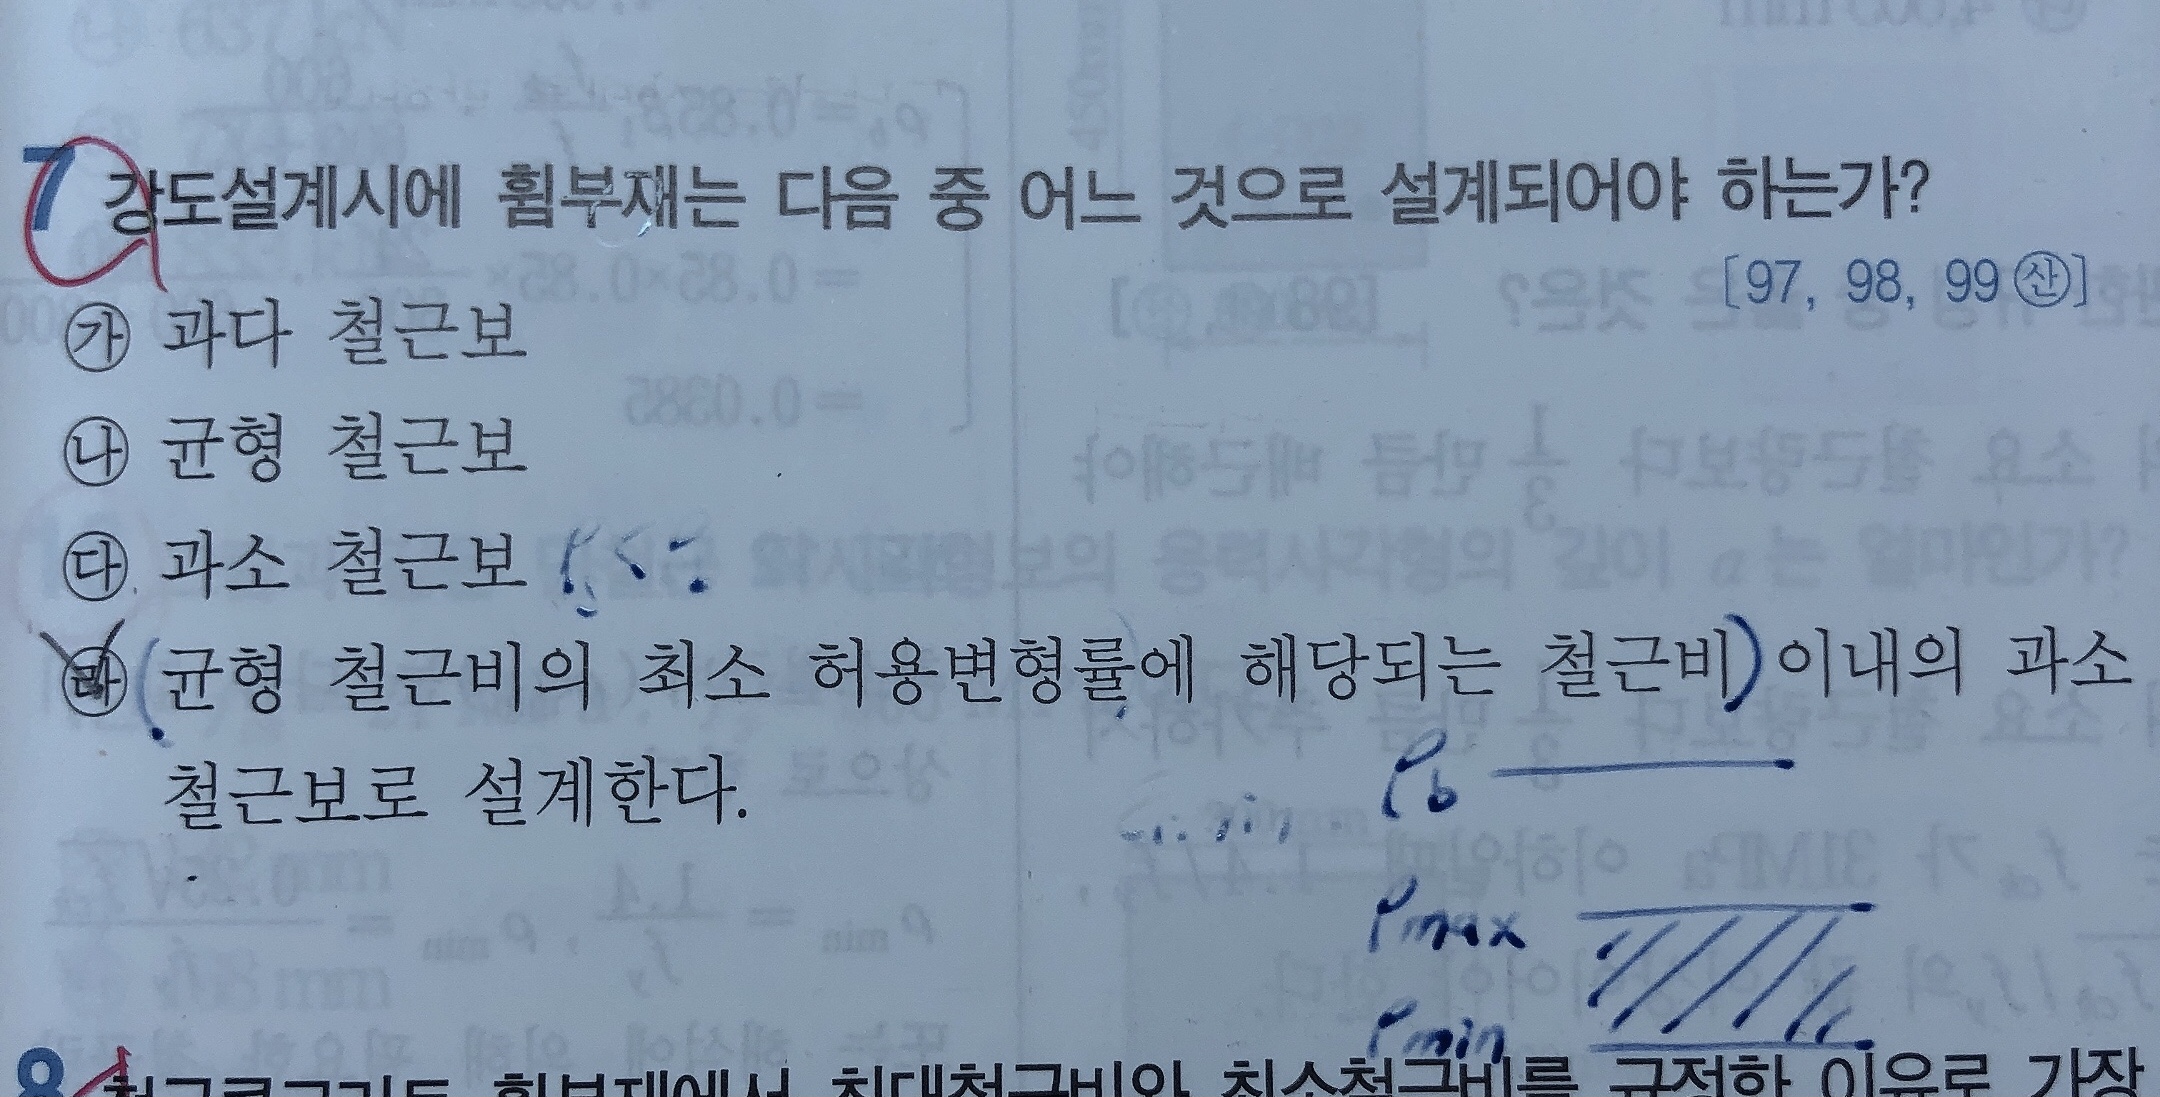 7 강도설계시에 휨부재는 다음 중 어느 것으로 설계되어야 하는가?
[97, 98, 99㉮산]
㉮ 과다 철근보
㉯ 균형 철근보
㉰ 과소 철근보
㉱ (균형 철근비의 최소 허용변형률에 해당되는 철근비) 이내의 과소
철근보로 설계한다.
ρb
ρmax
ρmin
8 철근콘크리트 휨부재에서 최대철근비와 최소철근비를 규정한 이유로 가장